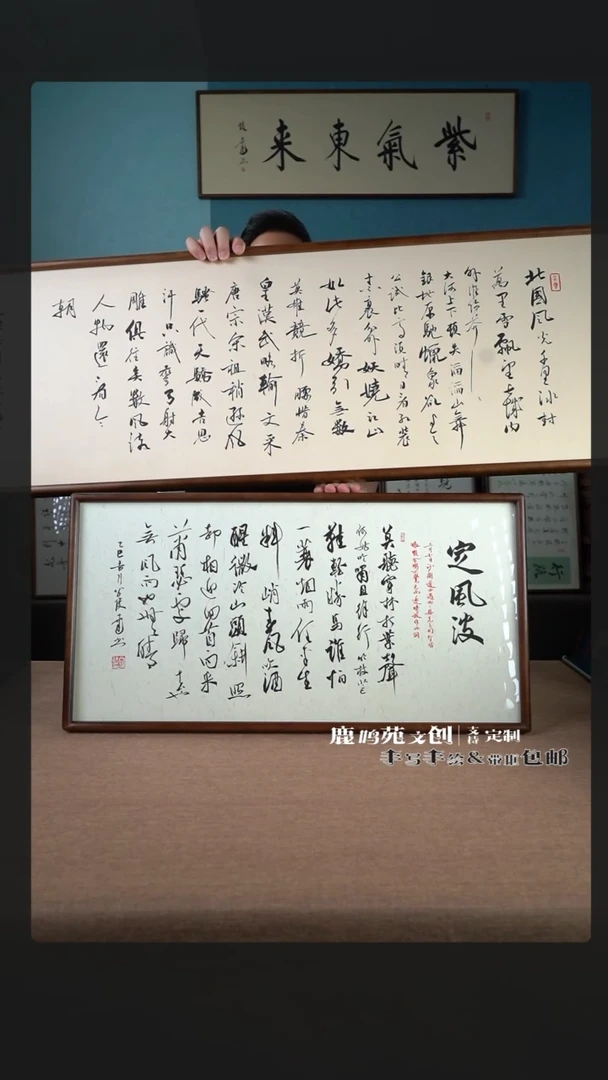 紫氣東来
北國風光千里冰封
萬里雪飄望長城内
外惟餘莽莽
大河上下頓失滔滔山舞
銀蛇原馳蠟象欲与天
公試比高須晴日看紅装
素裹分外妖嬈江山
如此多嬌引無數
英雄競折腰惜秦
皇漢武略輸文采
唐宗宋祖稍遜風
騷一代天驕成吉思
汗只識彎弓射大
雕俱往矣數風流
人物還看今
朝
定風波
莫聽穿林打葉聲
何妨吟嘯且徐行竹杖芒
鞋輕勝馬誰怕
一蓑烟雨任平生
料峭春風吹酒
醒微冷山頭斜照
却相迎回首向来
蕭瑟處歸去也
無風雨也無晴
鹿鸣苑文创|支持定制
手写手绘&带框包邮